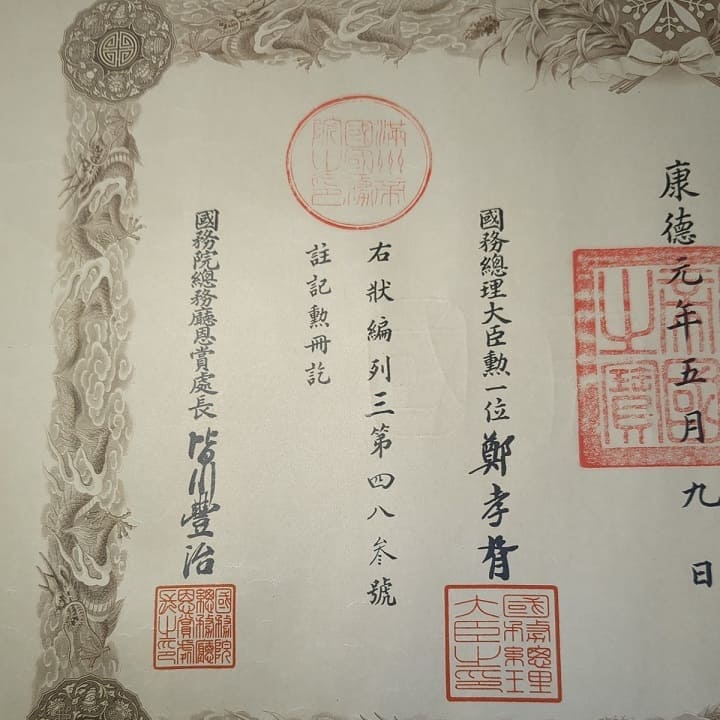 康德元年五月九日
帝國之寶
國務總理大臣勳一位鄭孝胥
國務總理大臣之印
右狀編列三第四八参號
註記勳冊訖
滿洲帝國國務院之印
國務院總務廳恩賞處長皆川豐治
國務院總務廳恩賞處長之印